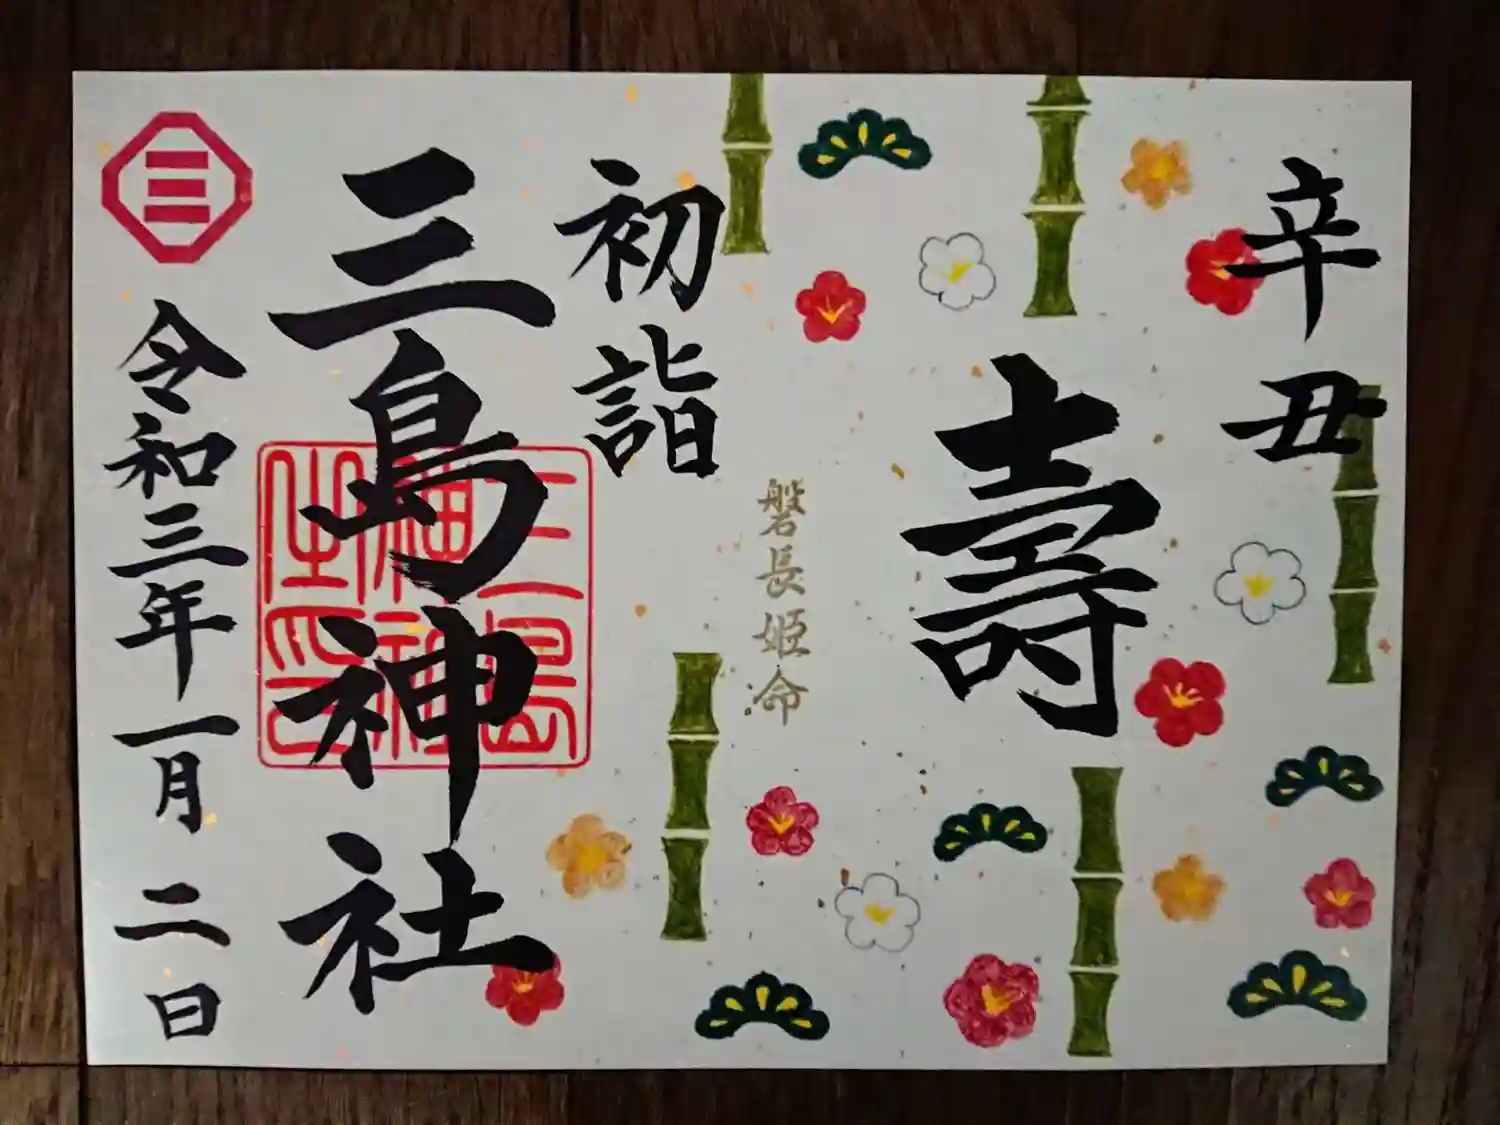 辛丑
壽
磐長姫命
初詣
三島神社
令和三年一月二日